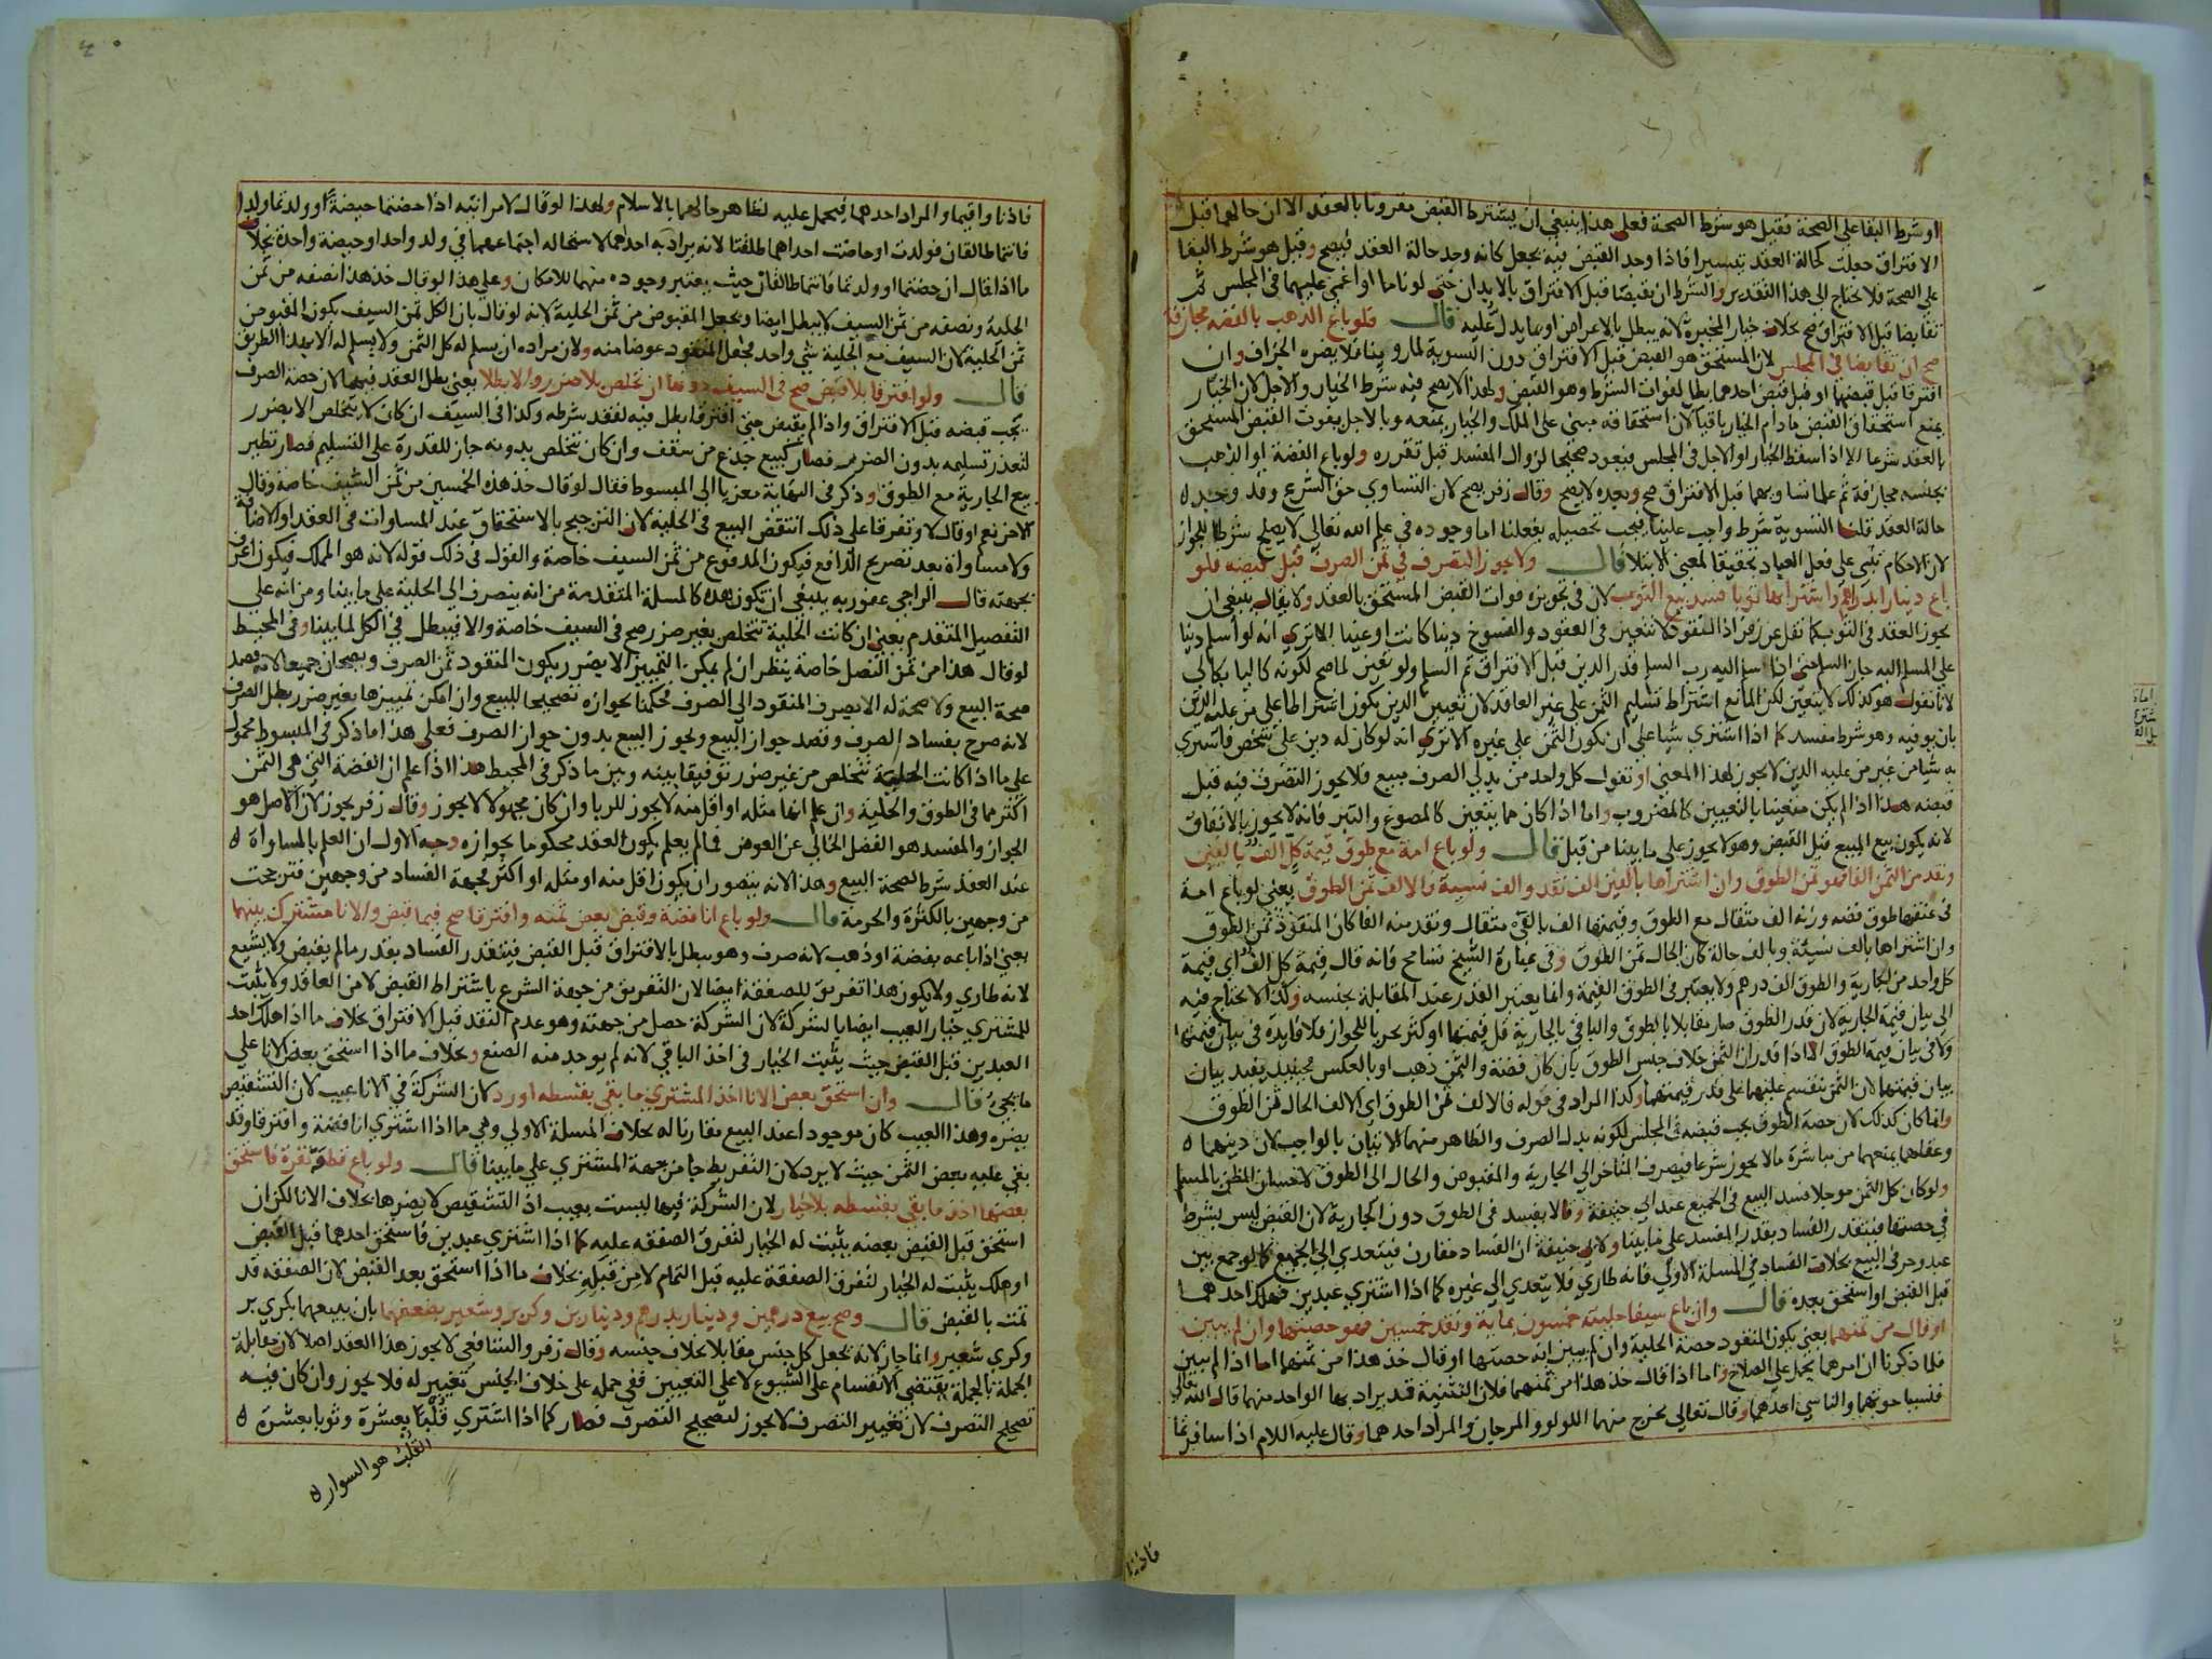 او شرط البقا على الصحة فقيل هو شرط الصحة فعلى هذا ينبغي ان يشترط القبض مقرونا بالعقد الا ان حالهما قبل
الافتراق جعلت كحالة العقد تيسيرا فاذا وجد القبض فيه يجعل كانه وجد حالة العقد فيصح وقيل هو شرط البقا
على الصحة فلا يحتاج الى هذا التقدير والشرط ان يقبضا قبل الافتراق بالابدان حتى لو ناما او اغمي عليهما في المجلس ثم
تقابضا قبل الافتراق صح بخلاف خيار المخيرة لانه يبطل بالاعراض او بما يدل عليه قال فلو باع الذهب بالفضة مجازفة
صح ان تقابضا في المجلس لان المستحق هو القبض قبل الافتراق دون التسوية لما روينا فلا يضره الجزاف وان
افترقا قبل قبضهما او قبل قبض احدهما بطل لفوات الشرط وهو القبض ولهذا لا يصح فيه شرط الخيار والاجل لان الخيار
يمنع استحقاق القبض ما دام الخيار باقيا لان استحقاقه مبني على الملك والخيار يمنعه وبالاجل يفوت القبض المستحق
بالعقد شرعا الا اذا اسقط الخيار او الاجل في المجلس فيعود صحيحا لزوال المفسد قبل تقرره ولو باع الفضة او الذهب
بجنسه مجازفة ثم علما تساويهما قبل الافتراق صح وبعده لا يصح وقال زفر يصح لان التساوي حق الشرع وقد وجد
حالة العقد قلنا التسوية شرط واجب علينا فيجب تحصيله بفعلنا اما وجوده في علم الله تعالى لا يصلح شرطا للجواز
لان الاحكام تبنى على فعل العباد تحقيقا لمعنى الابتلا قال ولا يجوز التصرف في ثمن الصرف قبل قبضه فلو
باع دينارا بدراهم واشترى بها ثوبا فسد بيع الثوب لان في تجويزه فوات القبض المستحق بالعقد ولا يقال ينبغي ان
يجوز العقد في الثوب كما نقل عن زفر اذ النقود لا تتعين في العقود والفسوخ دينا كانت او عينا الا ترى انه لو اسلم دينا
على المسلم اليه جاز السلم حتى اذا سلم اليه رب السلم قدر الدين قبل الافتراق تم السلم ولو تعين لما صح لكونه كاليا بكالي
لانا نقول هو كذلك لا يتعين لكن المانع اشتراط تسليم الثمن على غير العاقد لان تعيين الدين يكون اشتراطا على من عليه الدين
بان يوفيه وهو شرط مفسد كما اذا اشترى شيا على ان يكون الثمن على غيره الا ترى انه لو كان له دين على شخص فاشترى
به شيا من غير من عليه الدين لا يجوز لهذا المعنى او نقول كل واحد من بدلي الصرف مبيع فلا يجوز التصرف فيه قبل
قبضه هذا اذا لم يكن متعينا بالتعيين كالمضروب واما اذا كان مما يتعين كالمصوغ والتبر فانه لا يجوز بالاتفاق
لانه يكون بيع المبيع قبل القبض وهو لا يجوز على ما بينا من قبل قال ولو باع امة مع طوق قيمة كل الف بالفين
ونقد من الثمن الفا فهو ثمن الطوق وان اشتراها بالفين الف نقد والف نسيئة فالالف ثمن الطوق يعني لو باع امة
في عنقها طوق فضة وزنه الف مثقال مع الطوق وقيمتها الف بالفي مثقال ونقد منه الفا كان المنقود ثمن الطوق
وان اشتراها بالف نسيئة وبالف حالة كان الحال ثمن الطوق وفي عبارة الشيخ تسامح فانه قال قيمة كل الف اي قيمة
كل واحد من الجارية والطوق الف درهم ولا يعتبر في الطوق القيمة وانما يعتبر القدر عند المقابلة بجنسه وكذا لا يحتاج فيه
الى بيان قيمة الجارية لان قدر الطوق صار مقابلا بالطوق والباقي بالجارية قل قيمتها او كثر تحريا للجواز فلا فايدة في بيان قيمتها
ولا في بيان قيمة الطوق الا اذا قدر ان الثمن خلاف جنس الطوق بان كان فضة والثمن ذهب او بالعكس فحينيذ يفيد بيان
بيان قيمتهما لان الثمن ينقسم عليهما على قدر قيمتهما وكذا المراد في قوله فالالف ثمن الطوق اي الالف الحال ثمن الطوق
وانما كان كذلك لان حصة الطوق يجب قبضه في المجلس لكونه بدل الصرف والظاهر منهما الاتيان بالواجب لان دينهما
وعقلهما يمنعهما من مباشرة ما لا يجوز شرعا فيصرف المتاخر الى الجارية والمقبوض والحال الى الطوق لاحسان الظن بالمسلم
ولو كان كل الثمن موجلا فسد البيع في الجميع عند ابي حنيفة وقالا يفسد في الطوق دون الجارية لان القبض ليس بشرط
في حصتها فيتقدر الفساد بقدر المفسد على ما بينا ولابي حنيفة ان الفساد مقارن فيتعدى الى الجميع كما لو جمع بين
عبد وحر في البيع بخلاف الفساد في المسلة الاولى فانه طاري فلا يتعدى الى غيره كما اذا اشترى عبدين فهلك احدهما
قبل القبض او استحق بعده قال وان باع سيفا حليته خمسون بماية ونقد خمسين فهو حصتها وان لم يبين
او قال من ثمنهما يعني يكون المنقود حصة الحلية وان لم يبين انه حصتها او قال خذ هذا من ثمنهما اما اذا لم يبين
فلما ذكرنا ان امرهما يحمل على الصلاح واما اذا قال خذ هذا من ثمنهما فلان التثنية قد يراد بها الواحد منهما قال الله تعالى
فنسيا حوتهما والناسي احدهما وقال تعالى يخرج منهما اللولو والمرجان والمراد احدهما وقال عليه اللام اذا سافرتما
فاذنا
فاذنا واقيما والمراد احدهما فيحمل عليه لظاهر حالهما بالاسلام ولهذا لو قال لامراتيه اذا حضتما حيضة او ولدتما ولدا
فانتما طالقان فولدت او حاضت احداهما طلقتا لانه يراد به احداهما لاستحالة اجتماعهما في ولد واحد او حيضة واحدة بخلاف
ما اذا قال ان حضتما او ولدتما فانتما طالقان حيث يعتبر وجوده منهما للامكان وعلى هذا لو قال خذ هذا نصفه من ثمن
الحلية ونصفه من ثمن السيف لا يبطل ايضا ويجعل المقبوض من ثمن الحلية لانه لو قال بان الكل ثمن السيف يكون المقبوض
ثمن الحلية لان السيف مع الحلية شي واحد فجعل المنقود عوضا منه ولان مراده ان يسلم له كل الثمن ولا يسلم له الا بهذا الطريق
قال ولو افترقا بلا قبض صح في السيف دونها ان تخلص بلا ضرر والا بطلا يعني بطل العقد فيهما لان حصة الصرف
يجب قبضه قبل الافتراق واذا لم يقبض حتى افترقا بطل فيه لفقد شرطه وكذا في السيف ان كان لا يتخلص الا بضرر
لتعذر تسليمه بدون الضرر فصار كبيع جذع من سقف وان كان يتخلص بدونه جاز للقدرة على التسليم فصار نظير
بيع الجارية مع الطوق وذكر في النهاية معزيا الى المبسوط فقال لو قال خذ هذه الخمسين من ثمن السيف خاصة وقال
الاخر نعم او قال لا وتفرقا على ذلك انتقض البيع في الحلية لان الترجيح بالاستحقاق عند المساوات في العقد او الاضافة
ولا مساواة بعد تصريح الدافع فيكون المدفوع من ثمن السيف خاصة والقول في ذلك قوله لانه هو المملك فيكون اعرف
بجهته قال الراجي عفو ربه ينبغي ان تكون هذه كالمسلة المتقدمة من انه ينصرف الى الحلية على ما بينا ومن انه على
التفصيل المتقدم يعني ان كانت الحلية تتخلص بغير ضرر صح في السيف خاصة والا فيبطل في الكل لما بينا وفي المحيط
لو قال هذا من ثمن النصل خاصة ينظر ان لم يمكن التمييز الا بضرر يكون المنقود ثمن الصرف ويصحان جميعا لانه قصد
صحة البيع ولا صحة له الا بصرف المنقود الى الصرف فحكمنا بجوازه تصحيحا للبيع وان امكن تمييزها بغير ضرر بطل الصرف
لانه صرح بفساد الصرف وقصد جواز البيع ويجوز البيع بدون جواز الصرف فعلى هذا ما ذكر في المبسوط محمول
على ما اذا كانت الحلية تتخلص من غير ضرر توفيقا بينه وبين ما ذكر في المحيط هذا اذا علم ان الفضة التي هي الثمن
اكثر مما في الطوق والحلية وان علم انها مثله او اقل منه لا يجوز للربا وان كان مجهولا لا يجوز وقال زفر يجوز لان الاصل هو
الجواز والمفسد هو الفضل الخالي عن العوض فما لم يعلم يكون العقد محكوما بجوازه وجه الاول ان العلم بالمساواة
عند العقد شرط لصحة البيع وهذا لانه يتصور ان يكون اقل منه او مثله او اكثر فجهة الفساد من وجهين فترجحت
من وجهين بالكثرة والحرمة قال ولو باع انا فضة وقبض بعض ثمنه وافترقا صح فيما قبض والانا مشترك بينهما
يعني اذا باعه بفضة او ذهب لانه صرف وهو يبطل بالافتراق قبل القبض فيتقدر الفساد بقدر ما لم يقبض ولا يشيع
لانه طاري ولا يكون هذا تفريق للصفقة ايضا لان التفريق من جهة الشرع باشتراط القبض لا من العاقد ولا يثبت
للمشتري خيار العيب ايضا بالشركة لان الشركة حصل من جهته وهو عدم النقد قبل الافتراق بخلاف ما اذا هلك احد
العبدين قبل القبض حيث يثبت الخيار في اخذ الباقي لانه لم يوجد منه الصنع وبخلاف ما اذا استحق بعض الانا على
ما يجيء قال وان استحق بعض الانا اخذ المشتري ما بقي بقسطه او رد لان الشركة في الانا عيب لان التشقيص
يضره وهذا العيب كان موجودا عند البيع مقارنا له بخلاف المسلة الاولى وهي ما اذا اشترى انا فضة وافترقا وقد
بقي عليه بعض الثمن حيث لا يرد لان التفريط جا من جهة المشتري على ما بينا قال ولو باع قطعة نقرة فاستحق
بعضها اخذ ما بقي بقسطه بلا خيار لان الشركة فيها ليست بعيب اذ التشقيص لا يضرها بخلاف الانا لكن ان
استحق قبل القبض بعضه يثبت له الخيار لتفرق الصفقة عليه كما اذا اشترى عبدين فاستحق احدهما قبل القبض
او هلك يثبت له الخيار لتفرق الصفقة عليه قبل التمام لا من قبله بخلاف ما اذا استحق بعد القبض لان الصفقة قد
تمت بالقبض قال وصح بيع درهمين ودينار بدرهم ودينارين وكر بر وشعير بضعفهما بان يبيعهما بكري بر
وكري شعير وانما جاز لانه يجعل كل جنس مقابلا بخلاف جنسه وقال زفر والشافعي لا يجوز هذا العقد اصلا لان مقابلة
الجملة بالجملة يقتضي الانقسام على الشيوع لا على التعيين ففي حمله على خلاف الجنس تغيير له فلا يجوز وان كان فيه
تصحيح التصرف لان تغيير التصرف لا يجوز لتصحيح التصرف فصار كما اذا اشترى قلبا بعشرة وثوبا بعشرة
القلب هو السوار